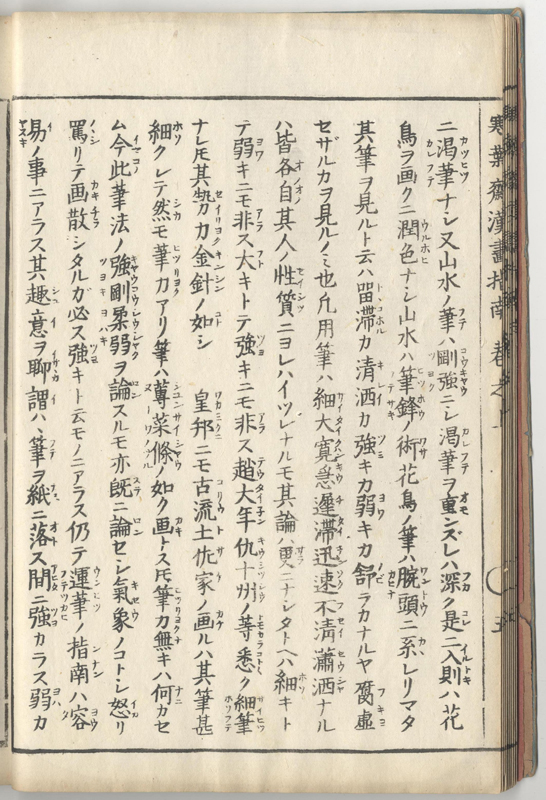 ニ渇筆ナシ又山水ノ筆ハ剛強ニシ渇筆ヲ重ンズレハ深ク是ニ入則ハ花
鳥ヲ画クニ潤色ナシ山水ハ筆鋒ノ術花鳥ノ筆ハ腕頭ニ系レリマタ
其筆ヲ見ルト云ハ畄滞カ清洒カ強キカ弱キカ舒ラカナルヤ腐虚
セザルカヲ見ルノミ也凡用筆ハ細大寛急遲滞迅速不清瀟洒ナル
ハ皆各自其人ノ性質ニヨレハイツレナルモ其論ハ更ニナシタトヘハ細キト
テ弱キニモ非ス大キトテ強キニモ非ス趙大年仇十州ノ等悉ク細筆
ナレ𪜈其㔟力金針ノ如シ 皇邦ニモ古流土佐家ノ画ルハ其筆甚
細クシテ然モ筆力アリ筆ハ蓴菜條ノ如ク画トス𪜈筆力無キハ何カセ
ム今此筆法ノ強剛柔弱ヲ論スルモ亦既ニ論セシ氣象ノコトシ怒リ
罵リテ画散シタルガ必ス強キト云モノニアラス仍テ運筆ノ指南ハ容
易ノ事ニアラス其趣意ヲ聊謂ハ筆ヲ紙ニ落ス間ニ強カラス弱カ
寒葉齋漢畫指南 巻之上
五